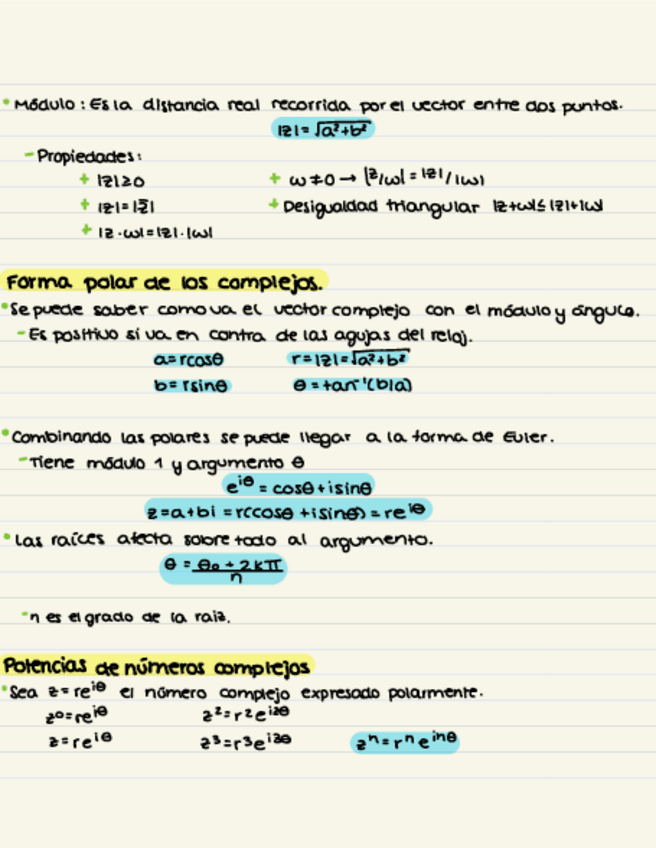 • Módulo: Es la distancia real recorrida por el vector entre dos puntos.
|z| = √a²+b²
- Propiedades:
+ |z|≥0 + ω≠0 → |z/ω| = |z|/|ω|
+ |z|=|z̅| + Desigualdad triangular |z+ω|≤|z|+|ω|
+ |z·ω|=|z|·|ω|
Forma polar de los complejos.
• Se puede saber como va el vector complejo con el módulo y ángulo.
- Es positivo si va en contra de las agujas del reloj.
a=rcosθ r=|z|=√a²+b²
b=rsinθ θ=tan⁻¹(b/a)
• Combinando las polares se puede llegar a la forma de Euler.
- Tiene módulo 1 y argumento θ
e^iθ = cosθ+isinθ
z=a+bi = r(cosθ +isinθ) = re^iθ
• Las raíces afecta sobre todo al argumento.
θ = θ₀ + 2kπ / n
- n es el grado de la raiz.
Potencias de números complejos
• Sea z=re^iθ el número complejo expresado polarmente.
z⁰=re^iθ z²=r²e^i2θ
z=re^iθ z³=r³e^i3θ zⁿ=rⁿe^inθ